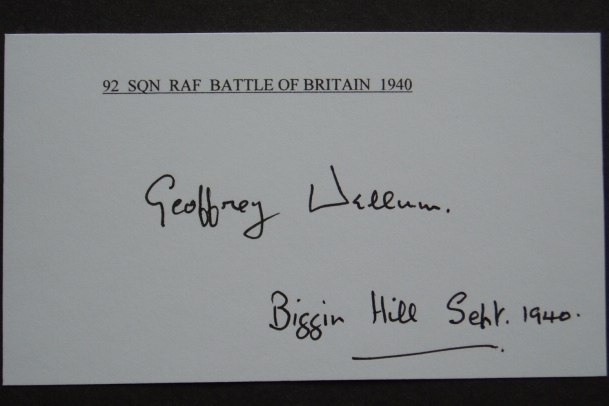 92 SQN RAF BATTLE OF BRITAIN 1940
Geoffrey Wellum.
Biggin Hill Sept. 1940.